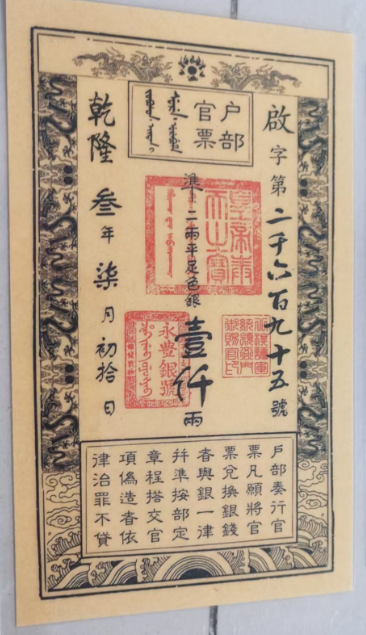 户部
官票
啟字第二千六百九十五號
準二兩平足色銀壹仟兩
乾隆叁年柒月初拾日
皇帝奉
天之寶
永豊銀號
户部奏行官
票凡願將官
票兌換銀錢
者與銀一律
幷準按部定
章程搭交官
項偽造者依
律治罪不貸